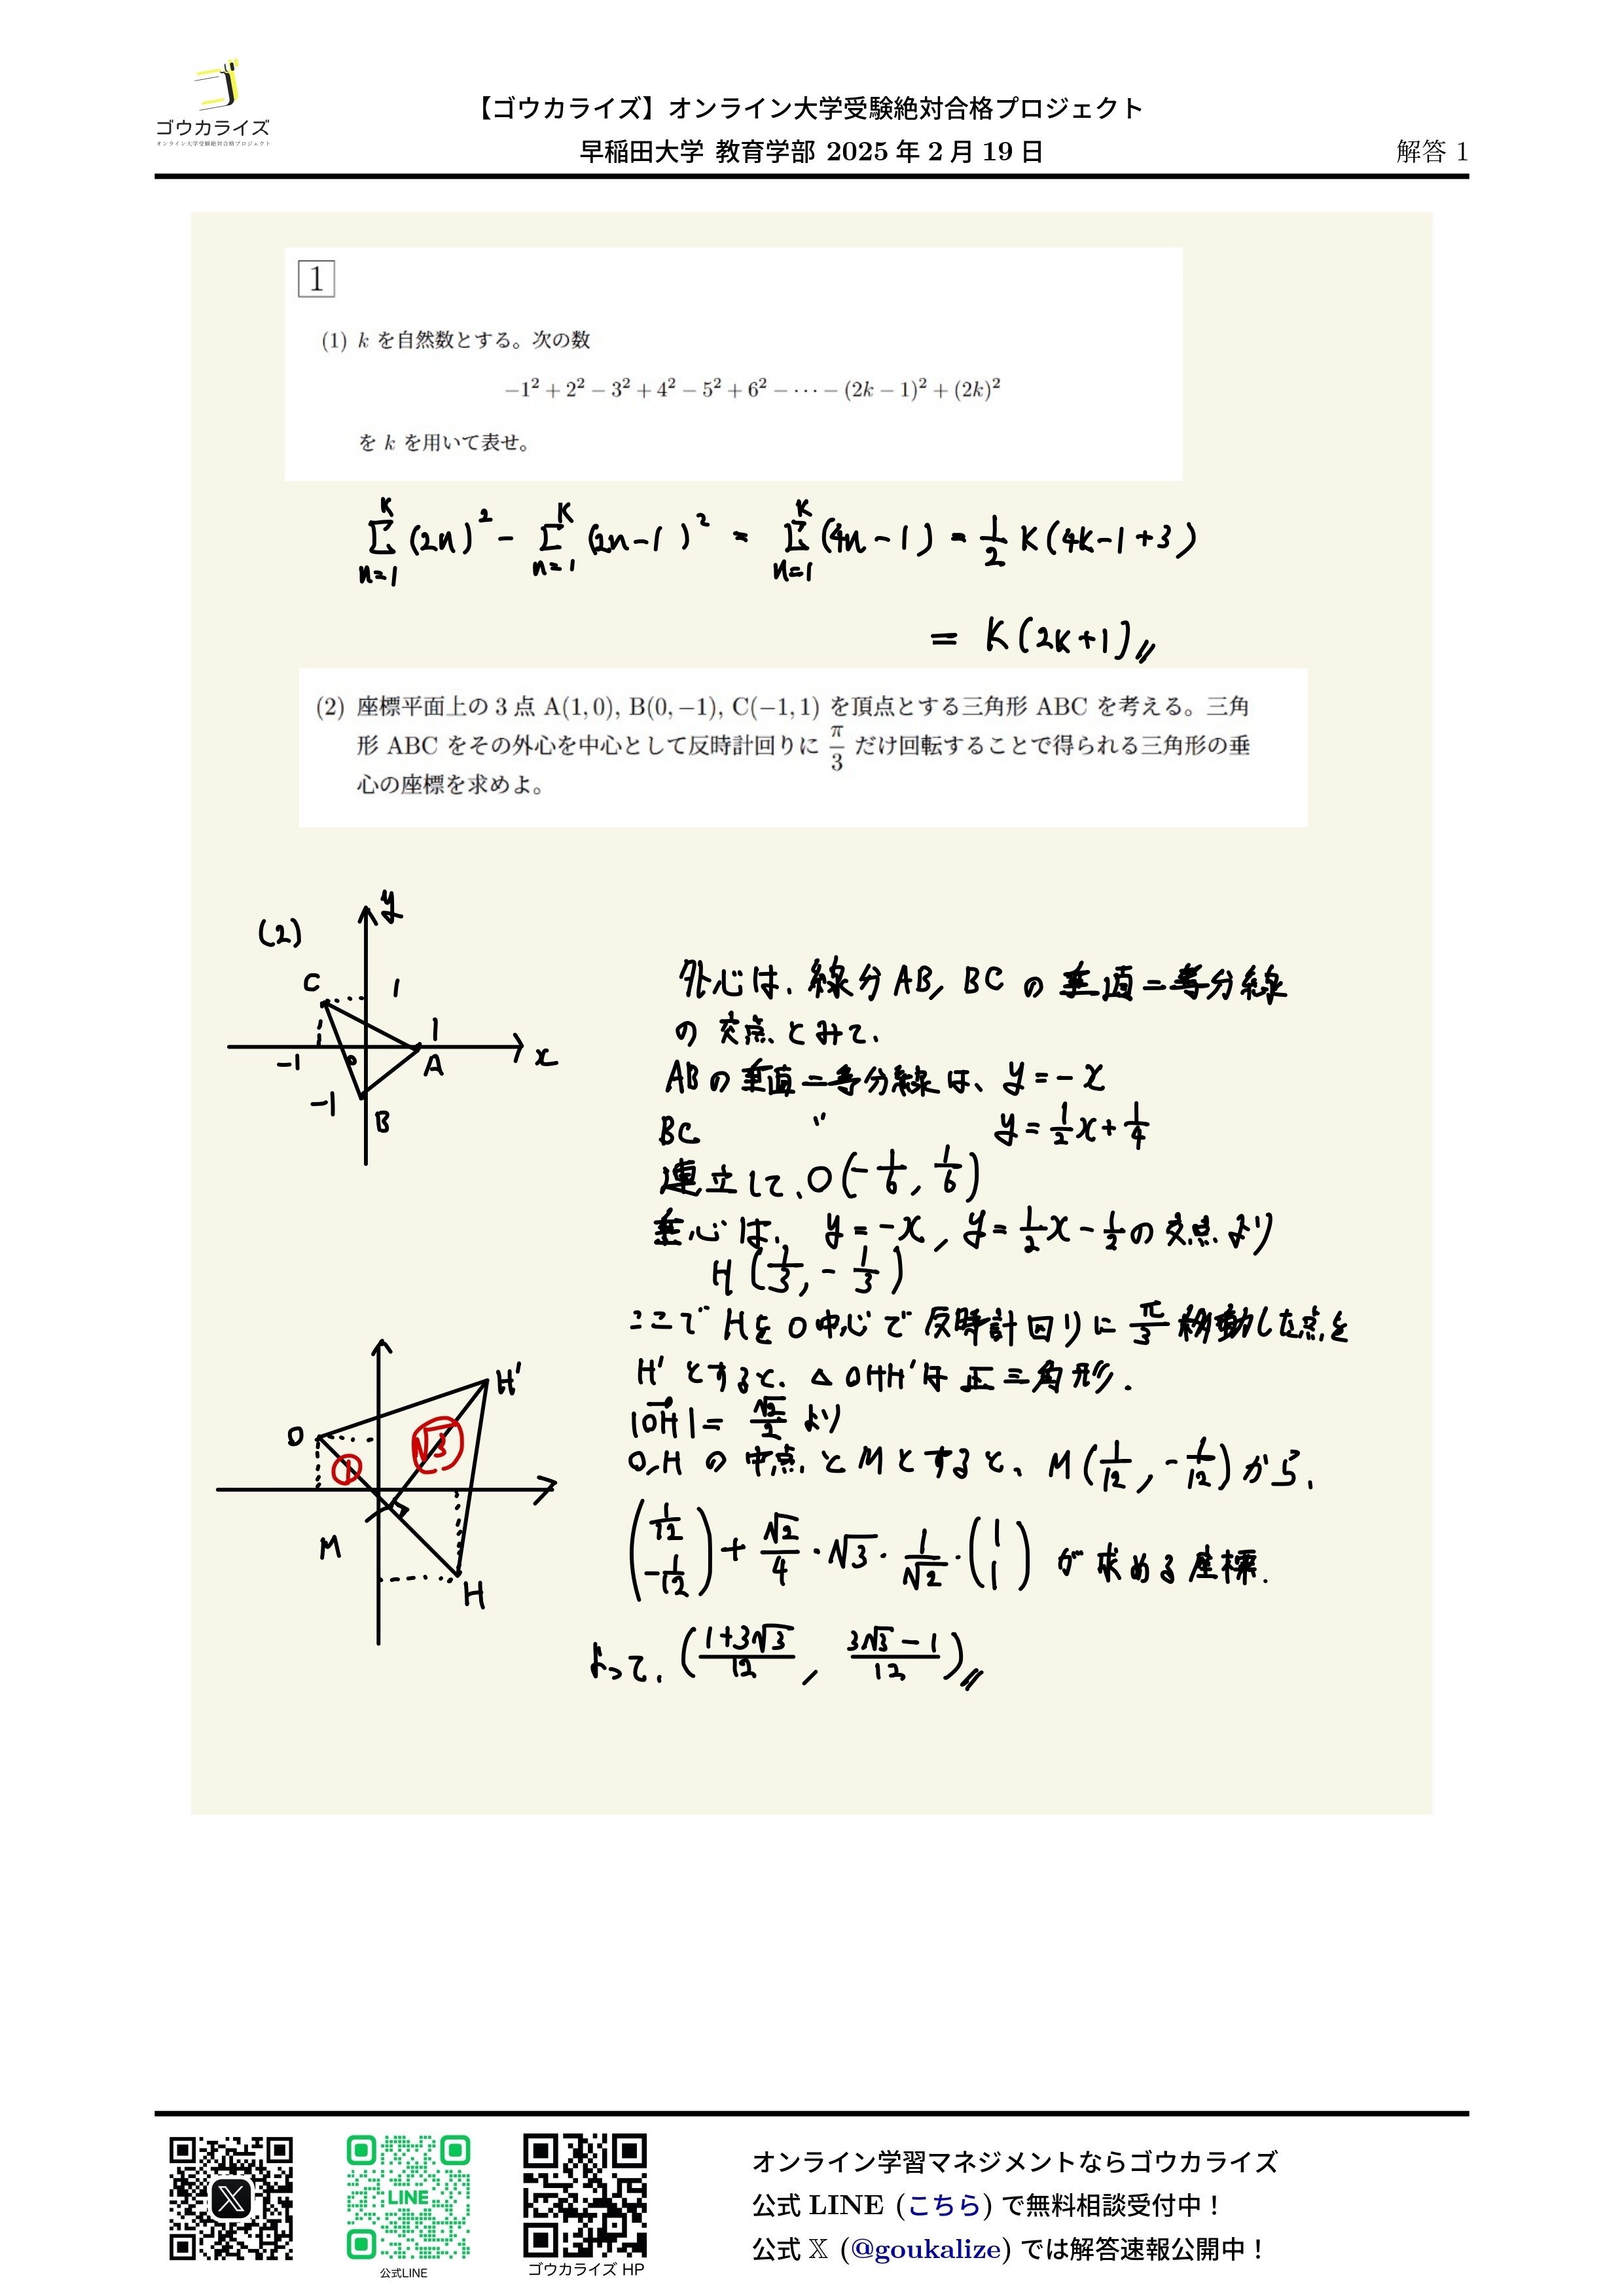 ゴウカライズ
オンライン大学受験絶対合格プロジェクト
【ゴウカライズ】オンライン大学受験絶対合格プロジェクト
早稲田大学 教育学部 2025 年 2 月 19 日
解答 1
1
(1) k を自然数とする。次の数
−1² + 2² − 3² + 4² − 5² + 6² − ⋯ − (2k − 1)² + (2k)²
を k を用いて表せ。
Σ_{n=1}^{K} (2n)² − Σ_{n=1}^{K} (2n−1)² = Σ_{n=1}^{K} (4n−1) = 1/2 K(4K−1+3)
= K(2K+1)〃
(2) 座標平面上の 3 点 A(1, 0), B(0, −1), C(−1, 1) を頂点とする三角形 ABC を考える。三角
形 ABC をその外心を中心として反時計回りに π/3 だけ回転することで得られる三角形の垂
心の座標を求めよ。
(2)
y
C
1
1
x
−1
0
A
−1
B
外心は、線分AB, BC の 垂直二等分線
の 交点とみて、
ABの 垂直二等分線は、y = −x
BC 〃 y = 1/2 x + 1/4
連立して、O(−1/6, 1/6)
垂心は、 y = −x, y = 1/2 x − 1/2 の 交点より
H (1/3, −1/3)
ここで Hを O中心で 反時計回りに π/3 移動した点を
H' とすると、△OHH'は 正三角形.
|OH| = √2/2 より
O,H の 中点 と M とすると、M(1/12, −1/12) から、
(1/12, −1/12) + √2/4 · √3 · 1/√2 · (1, 1) が 求める 座標.
よって、(1+3√3/12, 3√3−1/12)〃
H'
O
①
√3
M
H
LINE
公式LINE
ゴウカライズ HP
オンライン学習マネジメントならゴウカライズ
公式 LINE (こちら) で無料相談受付中！
公式 𝕏 (@goukalize) では解答速報公開中！